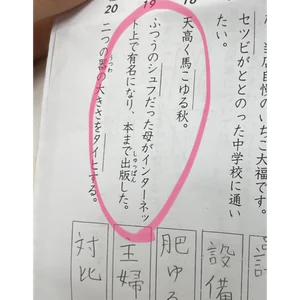 店自慢のいちご大福です。
セツビがととのった中学校に通い
たい。
18
天高く馬こゆる秋。
19
ふつうのシュフだった母がインターネッ
ト上で有名になり、本まで出版した。
しゅっぱん
20
二つの器の大きさをタイヒする。
うつわ
設備
肥ゆ
主婦
対比